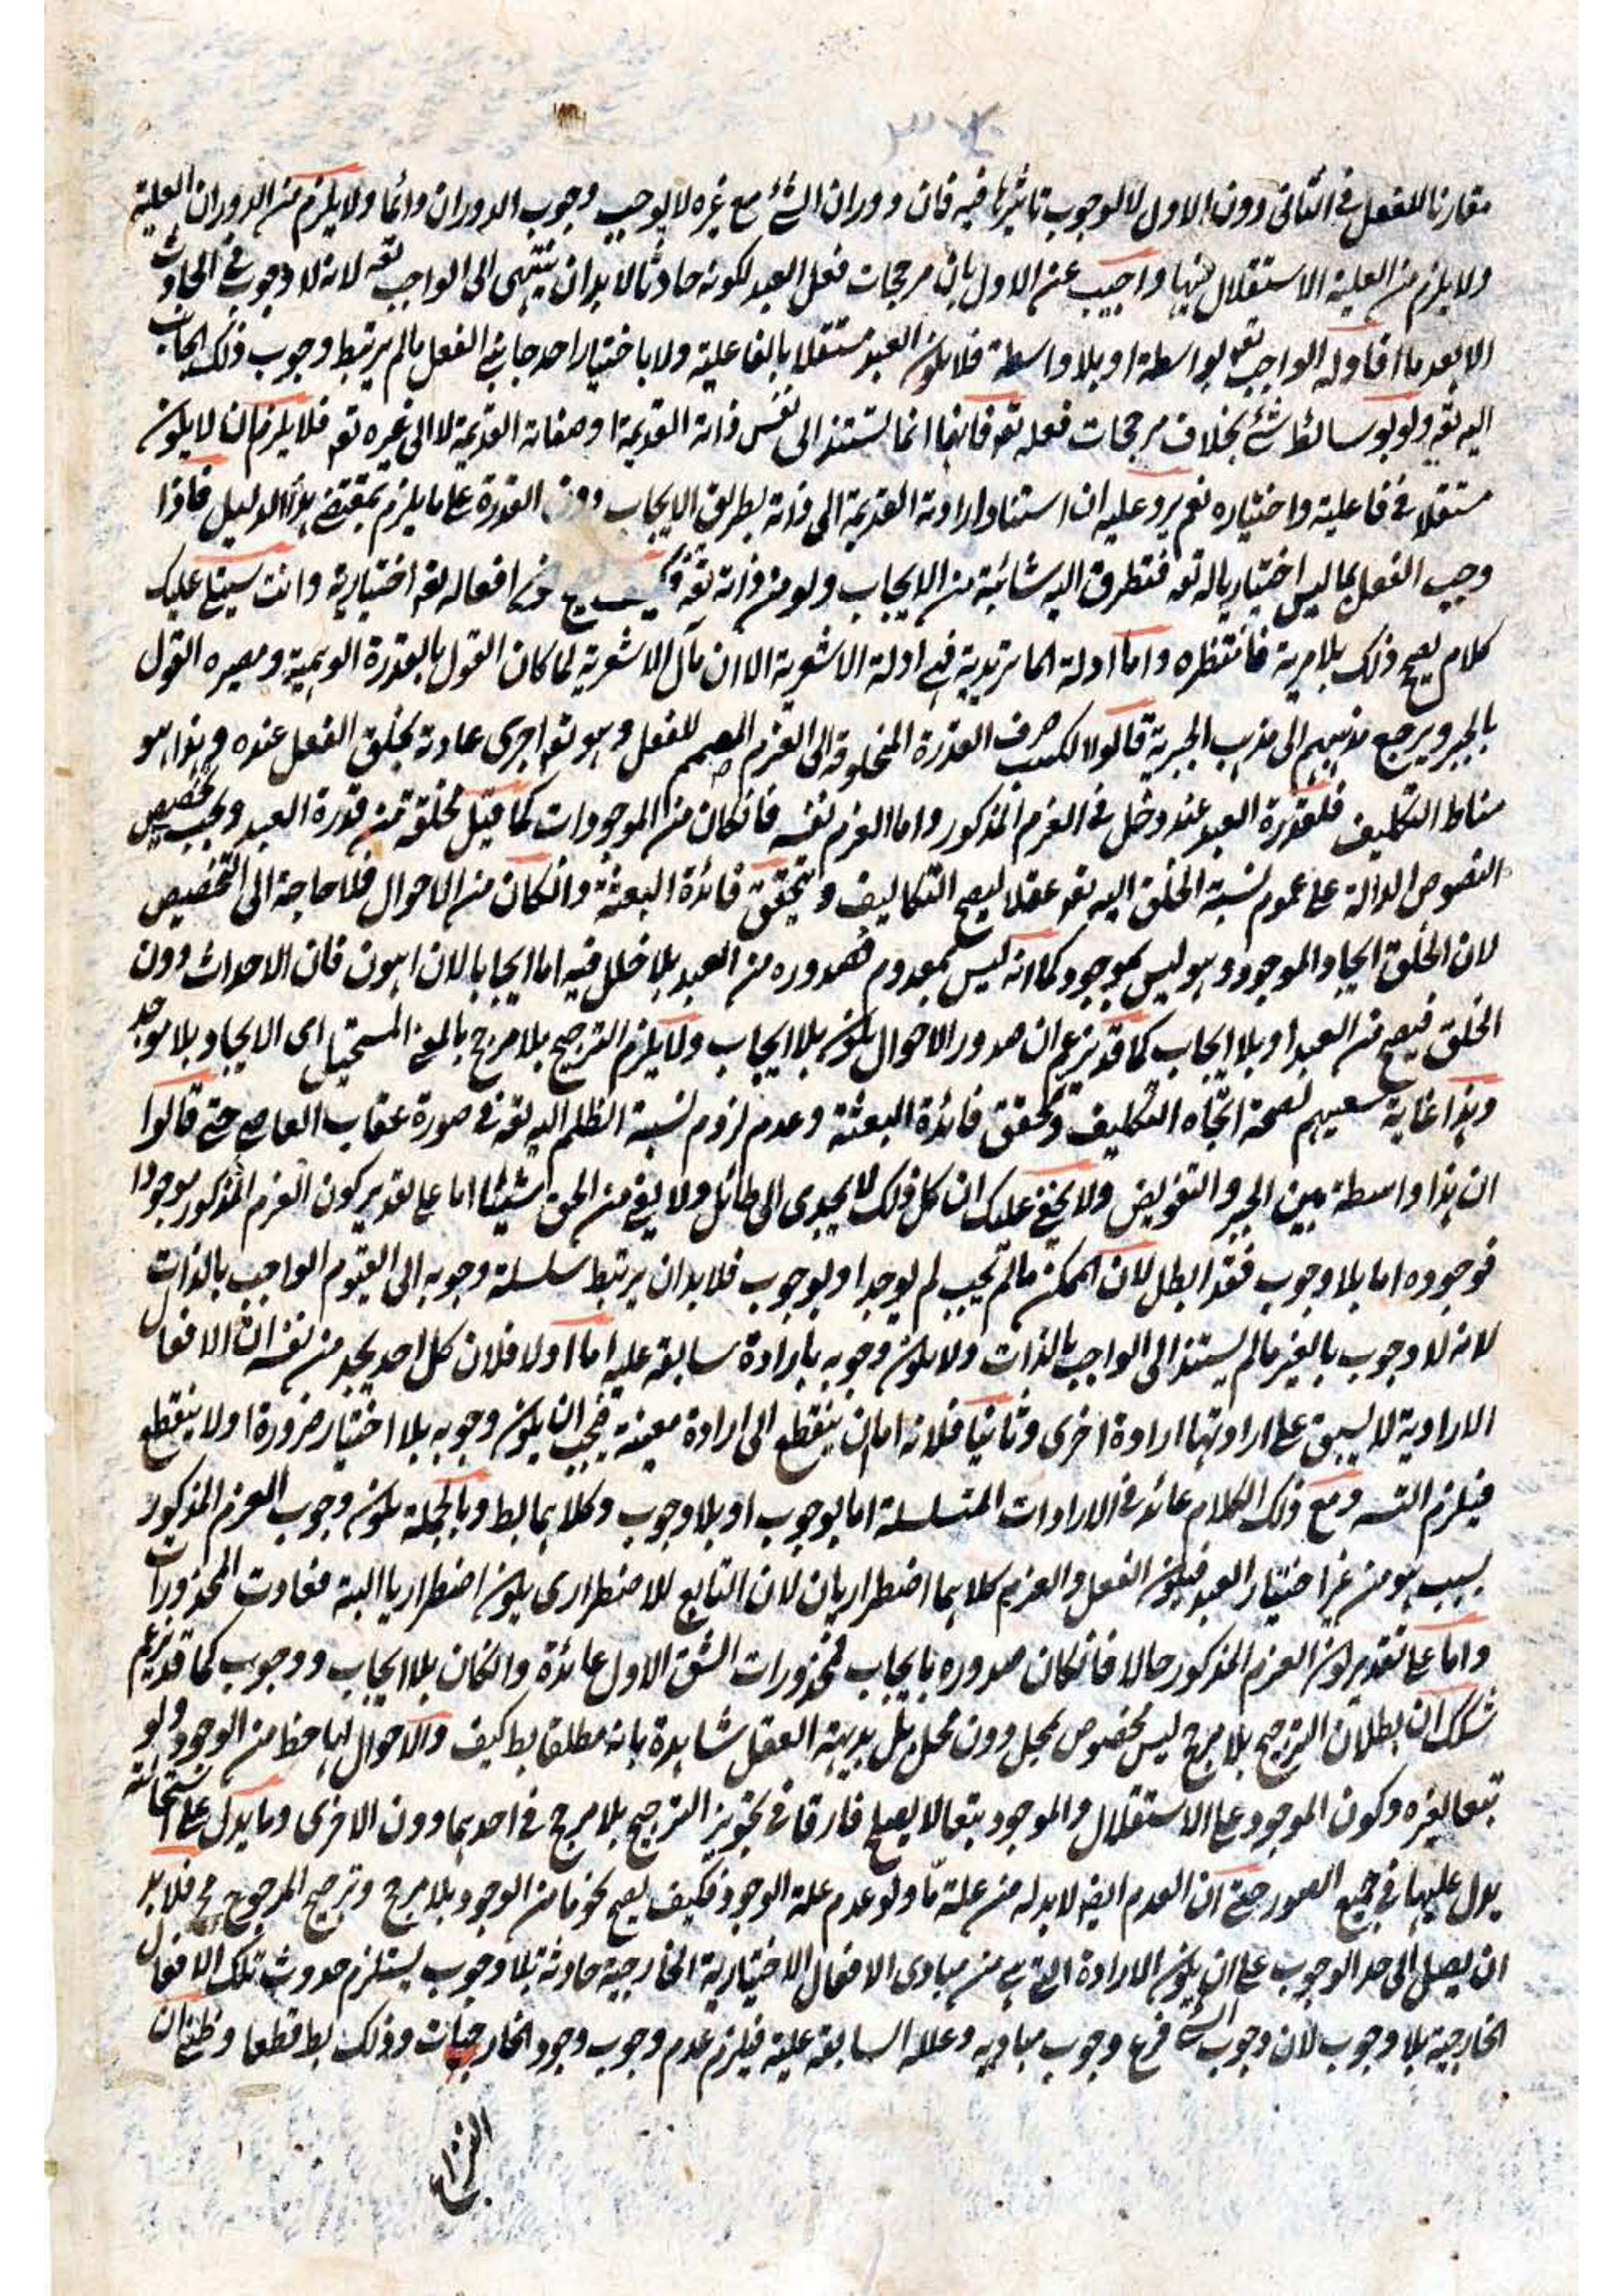 مقارنا للفعل فى الثانى دون الاول لا لوجوب تاثيرها فيه فان دوران الشئ مع غيره لا يوجب وجوب الدوران دائما ولا يلزم من الدوران العلية
ولا يلزم من العلية الاستقلال فيها واجيب عن الاول بان مرجحات فعل العبد لكونه حادثا لابد ان ينتهى الى الواجب تعه لانه لا وجوب فى الحادث
الا بعد ما افاده الواجب تعه بواسطة او بلا واسطة فلا يكون العبد مستقلا بالفاعلية ولا باختيار احد جانبى الفعل ما لم يرتبط وجوب ذلك الجانب
اليه تعه ولو بوسائط شئ بخلاف مرجحات فعله تعه فانها انما تستند الى نفس ذاته القديمة او صفاته القديمة لا الى غيره تعه فلا يلزم ان لا يكون
مستقلا فى فاعلية واختياره نعم يرد عليه ان استناد ارادته القديمة الى ذاته بطريق الايجاب دون القدرة على ما يلزم بمقتضى هذا الدليل فاذا
وجب الفعل بما ليس اختياريا له تعه فتطرق اليه شائبة من الايجاب ولو من ذاته تعه افعاله تعه اختيارية وانت سيتلى عليك
كلام يصح ذلك بلا مرية فانتظره واما ادلة الماتريدية فهى ادلة الاشعرية الا ان مآل الاشعرية لما كان القول بالقدرة الوهمية ومصيره القول
بالجبر ويرجع مذهبهم الى مذهب الجبرية قالوا الكسب صرف القدرة المخلوقة الى العزم المصمم للفعل وهو تعه اجرى عادته بخلق الفعل عنده وهذا هو
مناط التكليف فلقدرة العبد عنده دخل فى العزم المذكور واما العزم نفسه فان كان من الموجودات كما قيل فخلقه من قدرة العبد ويجب تخصيص
النصوص الدالة على عموم نسبة الخلق اليه تعه عقلا ليصح التكاليف ويتحقق فائدة البعثة وان كان من الاحوال فلا حاجة الى التخصيص
لان الخلق ايجاد الموجود وهو ليس بموجود كما انه ليس بمعدوم فصدوره من العبد بلا خلل فيه اما ايجابا لان اهون فان الاحداث دون
الخلق فيصح من العبد او بلا ايجاب كما قد يزعم ان صدور الاحوال يكون بلا ايجاب ولا يلزم الترجيح بلا مرجح بالمعنى المستحيل اى الايجاد بلا موجد
وهذا غاية سعيهم لصحة اتجاه التكليف وتحقق فائدة البعثة وعدم لزوم نسبة الظلم اليه تعه فى صورة عقاب العاصى حتى قالوا
ان هذا واسطة بين الجبر والتفويض ولا يخفى عليك ان كل ذلك لا يجدى الى طائل ولا يغنى من الحق شيئا اما على تقدير كون العزم المذكور موجودا
فوجوده اما بلا وجوب فقد ابطل لان الممكن ما لم يجب لم يوجد او بوجوب فلابد ان يرتبط سلسلة وجوبه الى القيوم الواجب بالذات
لانه لا وجوب بالغير ما لم يستند الى الواجب بالذات ولا يكون وجوبه بارادة سابقة عليه اما اولا فلان كل احد يجد من نفسه ان الافعال
الارادية لا يسبق على ارادتها ارادة اخرى وثانيا فلانه اما ان ينقطع الى ارادة معينة فيجب ان يكون وجوبه بلا اختيار ضرورة او لا ينقطع
فيلزم التسه ومع ذلك الكلام عائد فى الارادات المتسلسلة اما بوجوب او بلا وجوب وكلاهما بط وبالجملة يكون وجوب العزم المذكور
بسبب هو من غير اختيار العبد فيكون الفعل والعزم كلاهما اضطراريان لان التابع للاضطرارى يكون اضطراريا البتة فعادت المحذورات
واما على تقدير كون العزم المذكور حالا فان كان صدوره بايجاب فمحذورات الشق الاول عائدة وان كان بلا ايجاب ووجوب كما قد يزعم
شكك ان بطلان الترجيح بلا مرجح ليس مخصوص بمحل دون محل بل بديهة العقل شاهدة بانه مطلقا بط كيف والاحوال لها حظ من الوجود ولو
تبعا لغيره وكون الموجود على الاستقلال والموجود تبعا لا يصلح فارقا فى تجويز الترجيح بلا مرجح فى احدهما دون الاخرى وما يدل على استحالته
يدل عليها فى جميع الصور حتى ان العدم ايضا لابد له من علة ما ولو عدم علة الوجود فكيف يصح نحو ما من الوجود بلا مرجح وترجيح المرجوح مح فلابد
ان يصل الى حد الوجوب على ان يكون الارادة التى هى من مبادى الافعال الاختيارية الخارجية حادثة بلا وجوب يستلزم حدوث تلك الافعال
الخارجية بلا وجوب لان وجوب الشئ فرع وجوب مباديه وعلله السابقة عليه فيلزم عدم وجوب وجود الخارجيات وذلك بط قطعا وظنى ان